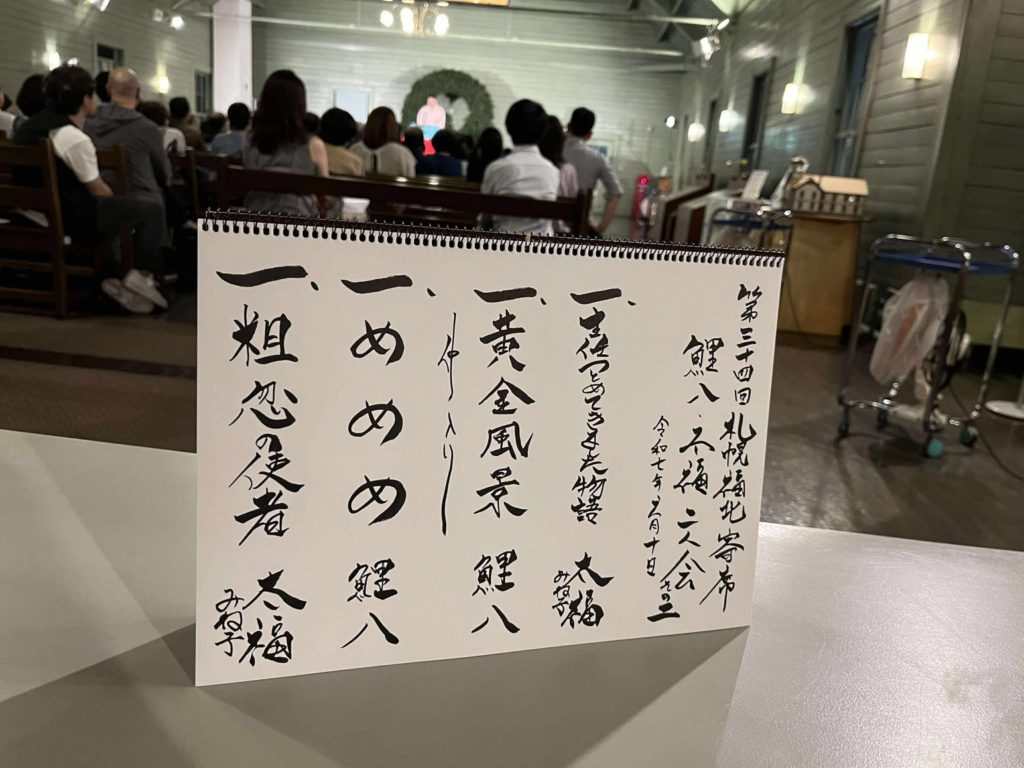 第三十四回 札幌福北寄席
鯉八・太福 二人会 その二
令和七年 六月十日
一、主任つとめてきました物語 太福 みね子
一、黄金風景 鯉八
仲入り
一、めめめ 鯉八
一、粗忽の使者 太福 みね子